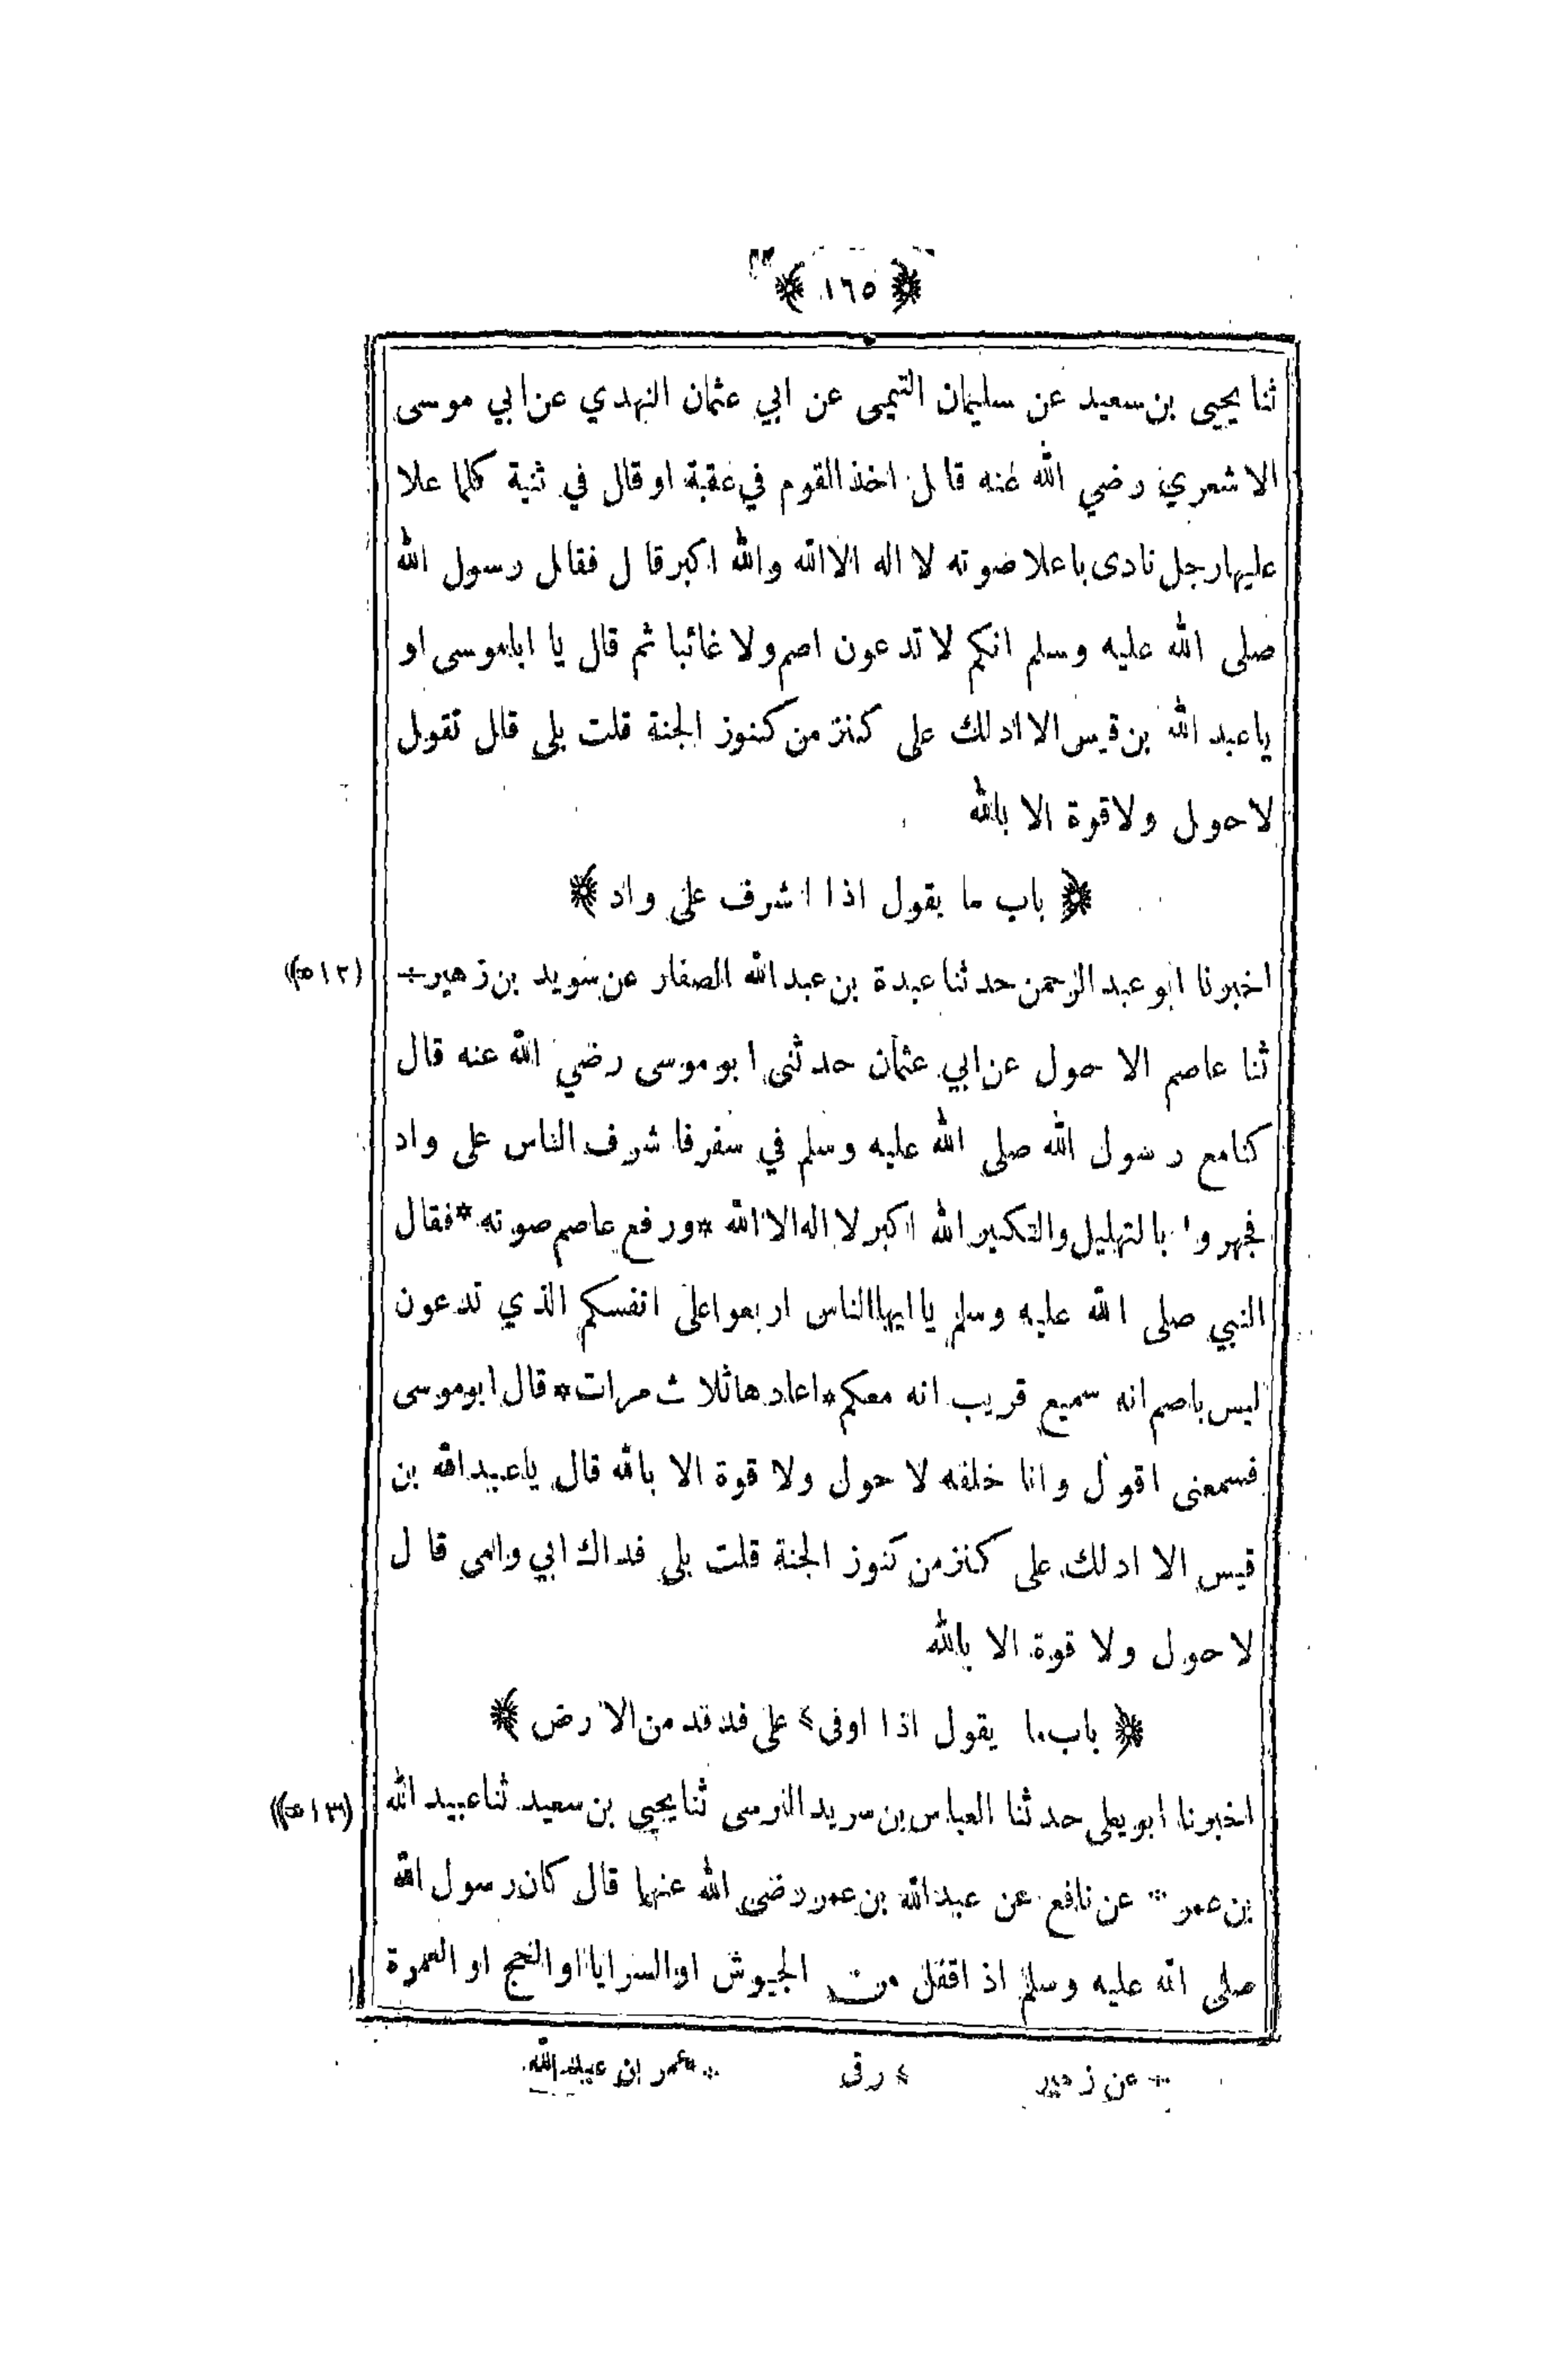 ﴿ ١٦٥ ﴾
ثنا يحيى بن سعيد عن سليمان التيمى عن ابي عثمان النهدي عن ابي موسى
الاشعري رضي الله عنه قال اخذ القوم في عقبة او قال في ثنية كلما علا
عليها رجل نادى باعلا صوته لا اله الا الله والله اكبر قال فقال رسول الله
صلى الله عليه وسلم انكم لا تدعون اصم ولا غائبا ثم قال يا ابا موسى او
يا عبد الله بن قيس الا ادلك على كنز من كنوز الجنة قلت بلى قال تقول
لا حول ولا قوة الا بالله
﴿ باب ما يقول اذا اشرف على واد ﴾
اخبرنا ابو عبد الرحمن حدثنا عبدة بن عبد الله الصفار عن سويد بن زهير÷ (٥١٢)
ثنا عاصم الاحول عن ابي عثمان حدثنى ابو موسى رضي الله عنه قال
كنا مع رسول الله صلى الله عليه وسلم في سفر فاشرف الناس على واد
فجهروا بالتهليل والتكبير الله اكبر لا اله الا الله *ورفع عاصم صوته *فقال
النبي صلى الله عليه وسلم يا ايها الناس اربعوا على انفسكم الذي تدعون
ليس باصم انه سميع قريب انه معكم *اعادها ثلاث مرات* قال ابو موسى
فسمعنى اقول وانا خلفه لا حول ولا قوة الا بالله قال يا عبد الله بن
قيس الا ادلك على كنز من كنوز الجنة قلت بلى فداك ابي وامى قال
لا حول ولا قوة الا بالله
﴿ باب ما يقول اذا اوفى > على فدفد من الارض ﴾
اخبرنا ابو يعلى حدثنا العباس بن النرسى ثنا يحيى بن سعيد ثنا عبيد الله (٥١٣)
بن عمر ** عن نافع عن عبد الله بن عمر رضى الله عنهما قال كان رسول الله
صلى الله عليه وسلم اذ اقفل من الجيوش او السرايا او الحج او العمرة
÷ عن زهير > رقى ** عمر ابن عبيد الله